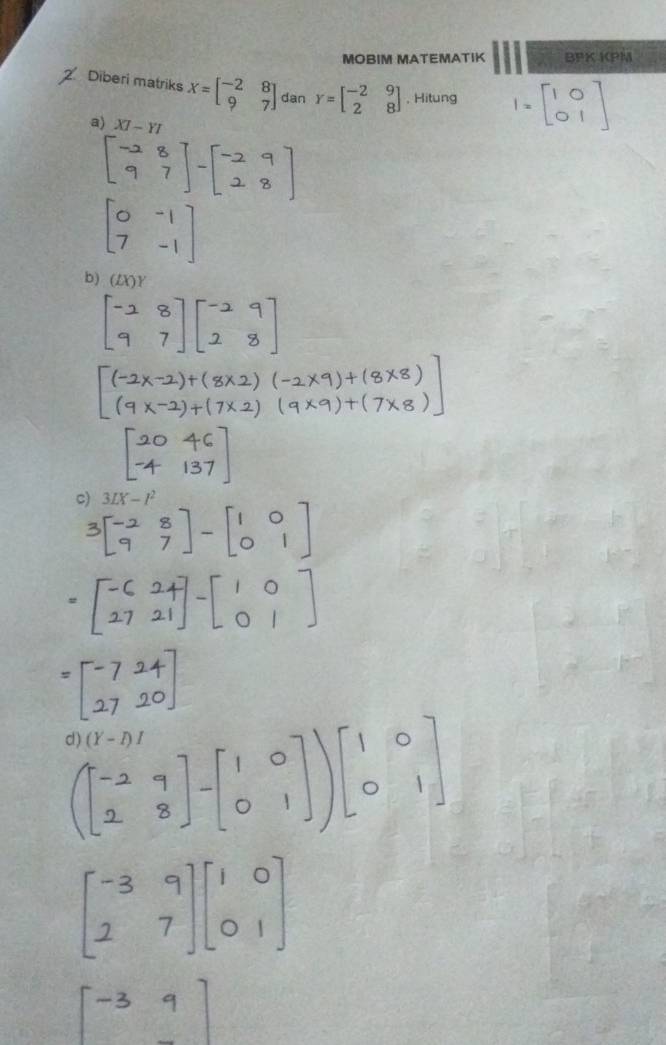 MOBIM MATEMATIK BPK KPM
2. Diberi matriks X = [-2 8
9 7] dan Y = [-2 9
2 8]. Hitung I = [1 0
0 1]
a) XI - YI
[-2 8
9 7] - [-2 9
2 8]
[0 -1
7 -1]
b) (IX)Y
[-2 8
9 7] [-2 9
2 8]
[(-2x-2)+(8x2) (-2x9)+(8x8)
(9x-2)+(7x2) (9x9)+(7x8)]
[20 46
-4 137]
c) 3IX - I²
3[-2 8
9 7] - [1 0
0 1]
= [-6 24
27 21] - [1 0
0 1]
= [-7 24
27 20]
d) (Y - I) I
([-2 9
2 8] - [1 0
0 1]) [1 0
0 1]
[-3 9
2 7] [1 0
0 1]
[-3 9]